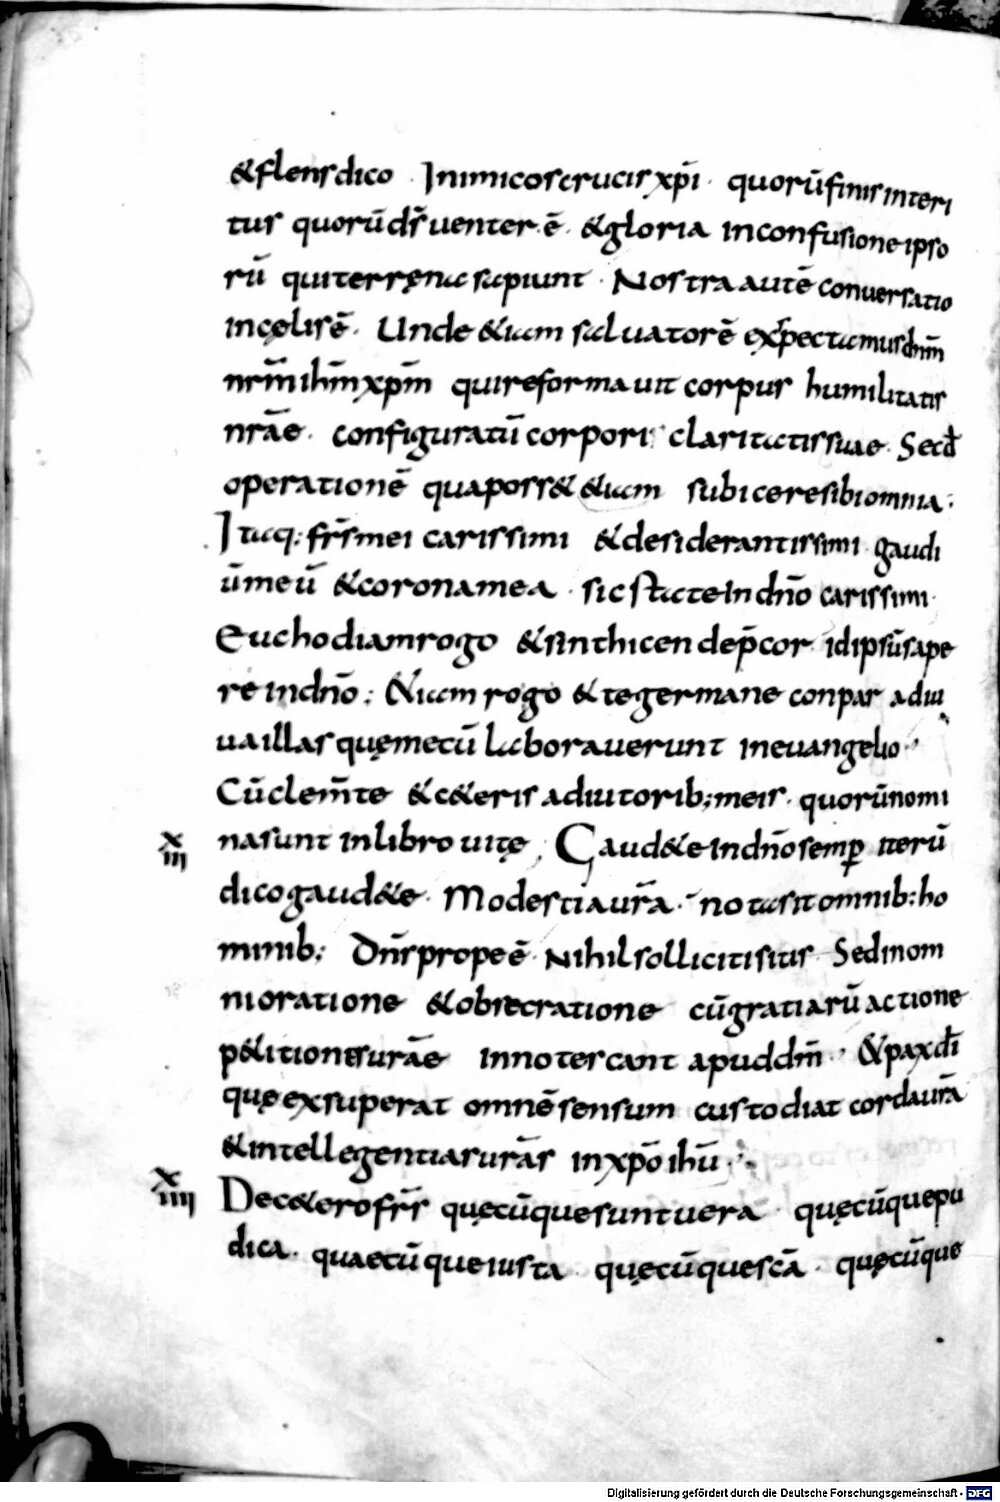 &flens dico · Inimicos crucis xp̄i · quorū finis interi
tus quorū ds̄ uenter ē · & gloria in confusione ipso
rū qui terręna sapiunt · Nostra autē conuersatio
in cęlis ē · Unde &iam saluatorē exspectamus dnm̄
nrm̄ ihm̄ xpm̄ qui reformauit corpus humilitatis
nrāe · configuratū corpori claritatis suae · Secd̄
operationē qua poss& &iam subicere sibi omnia ·
Itaq: frs̄ mei carissimi & desiderantissimi gaudi
ū meū & corona mea · sic state in dnō carissimi ·
Euchodiam rogo & sinthicen dep̄cor idipsū sape
re in dnō ; &iam rogo & te germane conpar adiu
ua illas quę mecū laborauerunt in euangelio ·
Cū clem̄te & c&eris adiutorib; meis · quorū nomi
xiii na sunt in libro uitę ; Gaud&e in dnō semp iterū
dico gaud&e · Modestia urā · nota sit omnib: ho
minib; Dn̄s prope ē · Nihil solliciti sitis Sed in om
ni oratione & obsecratione cū gratiarū actione
p&itiones urāe innotescant apud dm̄ · & pax dī
quę exsuperat omnē sensum custodiat corda urā
& intellegentias urās in xpō ihū ·
xiiii De c&ero frs̄ quęcūque sunt uera quęcūque pu
dica · quaecūque iusta quęcūque scā · quęcūque
Digitalisierung gefördert durch die Deutsche Forschungsgemeinschaft - DFG